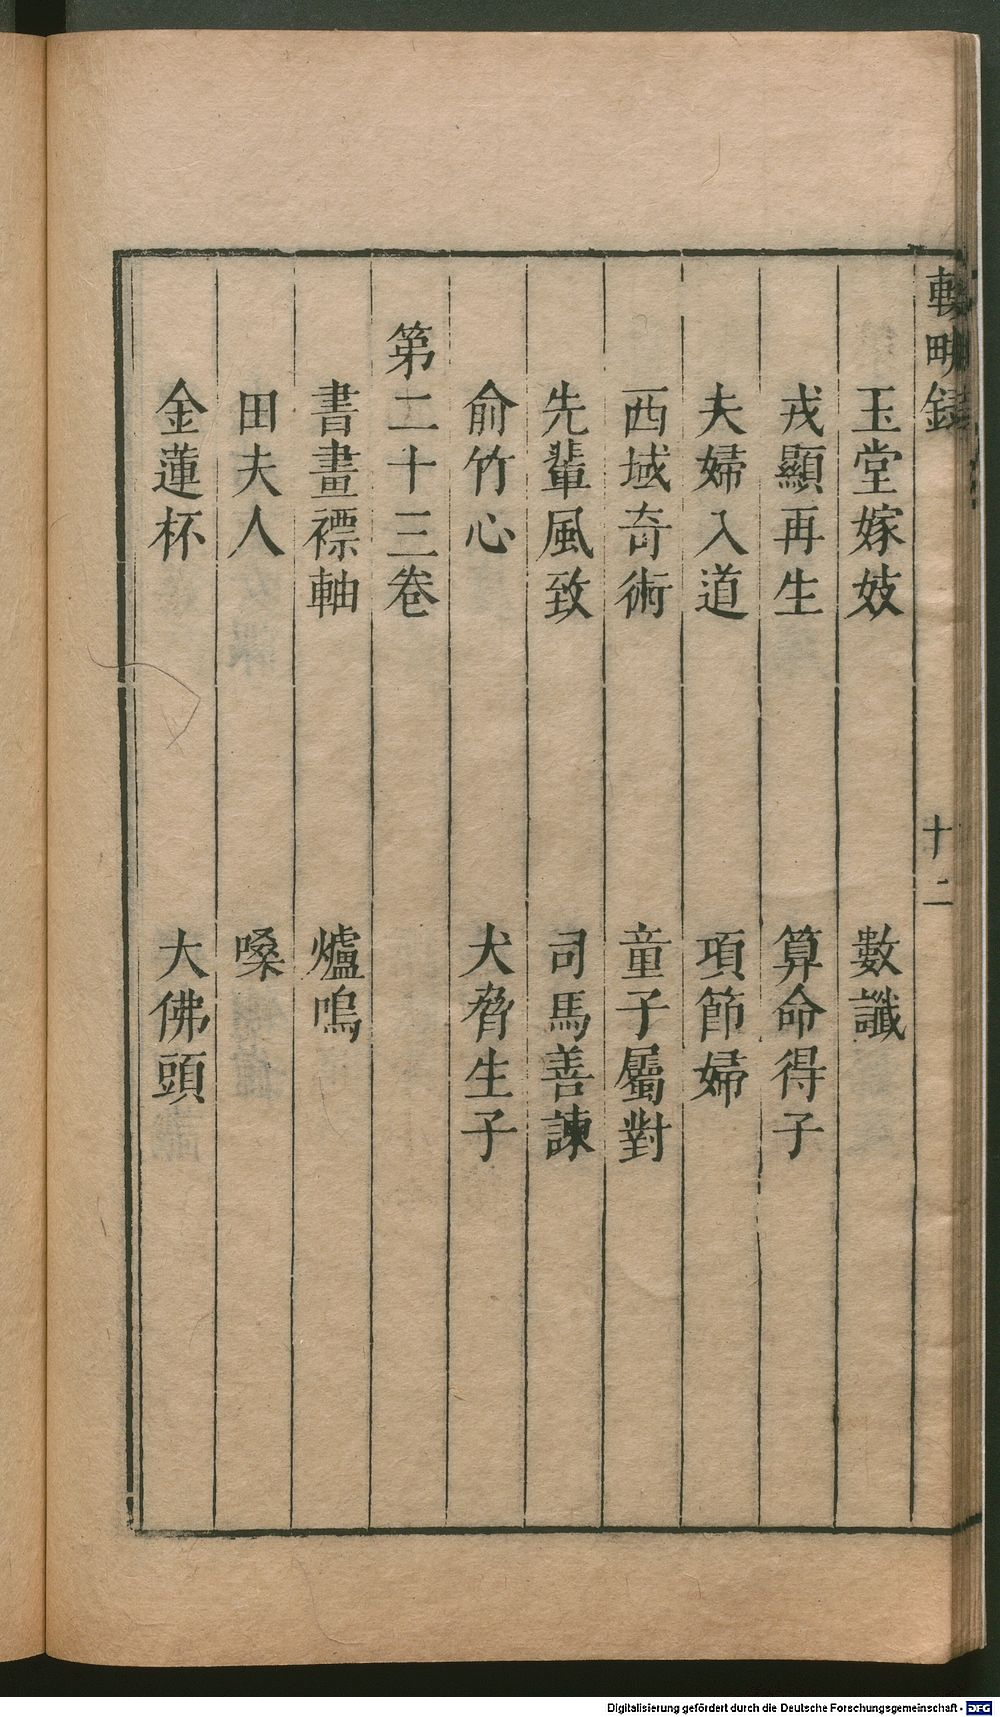 輟畊錄
十二
玉堂嫁妓　數讖
戎顯再生　算命得子
夫婦入道　項節婦
西域奇術　童子屬對
先輩風致　司馬善諫
俞竹心　犬脅生子
第二十三卷
書畫褾軸　爐鳴
田夫人　嗓
金蓮杯　大佛頭
Digitalisierung gefördert durch die Deutsche Forschungsgemeinschaft - DFG